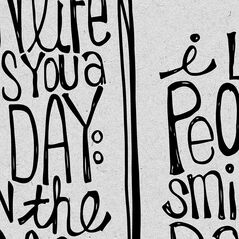 N life
S YOU a
DAY:
N the
i L
PEO
smi